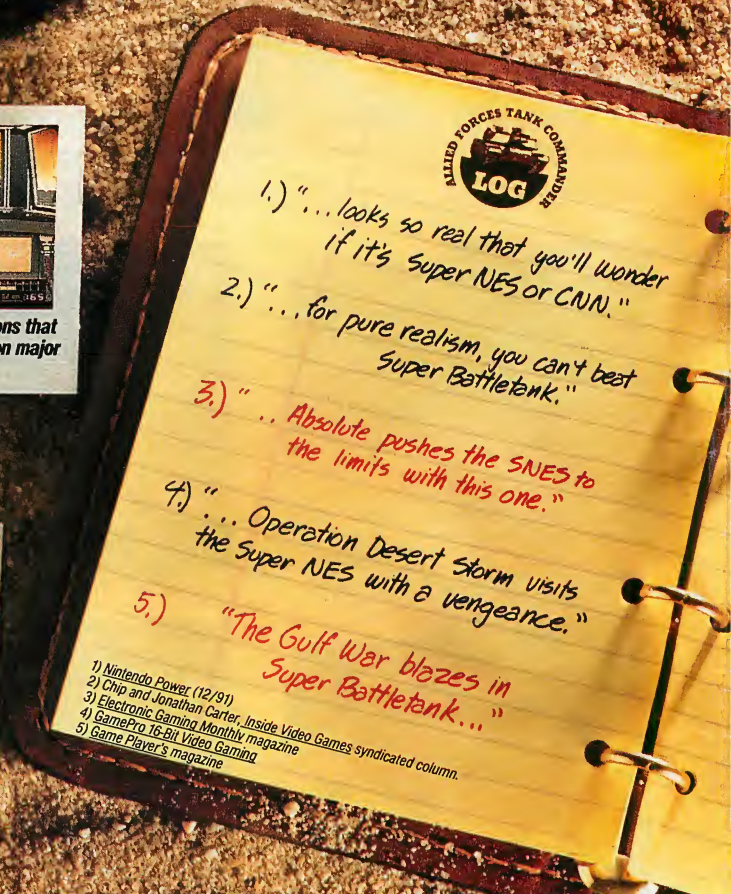 ALLIED FORCES TANK COMMANDER
LOG
1.) "... looks so real that you'll wonder
if it's Super NES or CNN."
2.) "... for pure realism, you can't beat
Super Battletank."
3.) " .. Absolute pushes the SNES to
the limits with this one."
4.) "... Operation Desert Storm visits
the Super NES with a vengeance."
5.) "The Gulf War blazes in
Super Battletank..."
1) Nintendo Power (12/91)
2) Chip and Jonathan Carter, Inside Video Games syndicated column.
3) Electronic Gaming Monthly magazine
4) GamePro 16-Bit Video Gaming
5) Game Player's magazine
ons that
n major